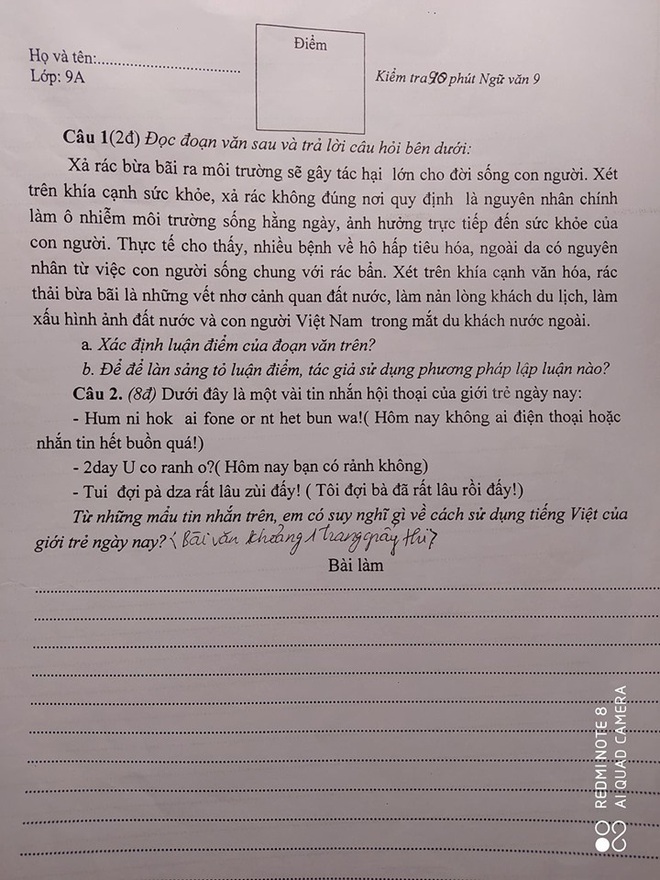 Điểm
Họ và tên:
Lớp: 9A
Kiểm tra 90 phút Ngữ văn 9
Câu 1(2đ) Đọc đoạn văn sau và trả lời câu hỏi bên dưới:
Xả rác bừa bãi ra môi trường sẽ gây tác hại lớn cho đời sống con người. Xét
trên khía cạnh sức khỏe, xả rác không đúng nơi quy định là nguyên nhân chính
làm ô nhiễm môi trường sống hằng ngày, ảnh hưởng trực tiếp đến sức khỏe của
con người. Thực tế cho thấy, nhiều bệnh về hô hấp tiêu hóa, ngoài da có nguyên
nhân từ việc con người sống chung với rác bẩn. Xét trên khía cạnh văn hóa, rác
thải bừa bãi là những vết nhơ cảnh quan đất nước, làm nản lòng khách du lịch, làm
xấu hình ảnh đất nước và con người Việt Nam trong mắt du khách nước ngoài.
a. Xác định luận điểm của đoạn văn trên?
b. Để để làn sảng tỏ luận điểm, tác giả sử dụng phương pháp lập luận nào?
Câu 2. (8đ) Dưới đây là một vài tin nhắn hội thoại của giới trẻ ngày nay:
- Hum ni hok ai fone or nt het bun wa!( Hôm nay không ai điện thoại hoặc
nhắn tin hết buồn quá!)
- 2day U co ranh o?( Hôm nay bạn có rảnh không)
- Tui đợi pà dza rất lâu zùi đấy! ( Tôi đợi bà đã rất lâu rồi đấy!)
Từ những mẩu tin nhắn trên, em có suy nghĩ gì về cách sử dụng tiếng Việt của
giới trẻ ngày nay? ( Bài văn khoảng 1 trang giấy thi)
Bài làm
REDMI NOTE 8
AI QUAD CAMERA